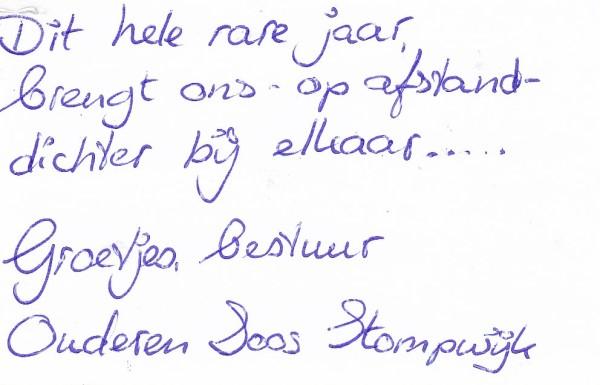 Dit hele rare jaar,
brengt ons - op afstand -
dichter bij elkaar.....
Groetjes, bestuur
Ouderen Soos Stompwijk